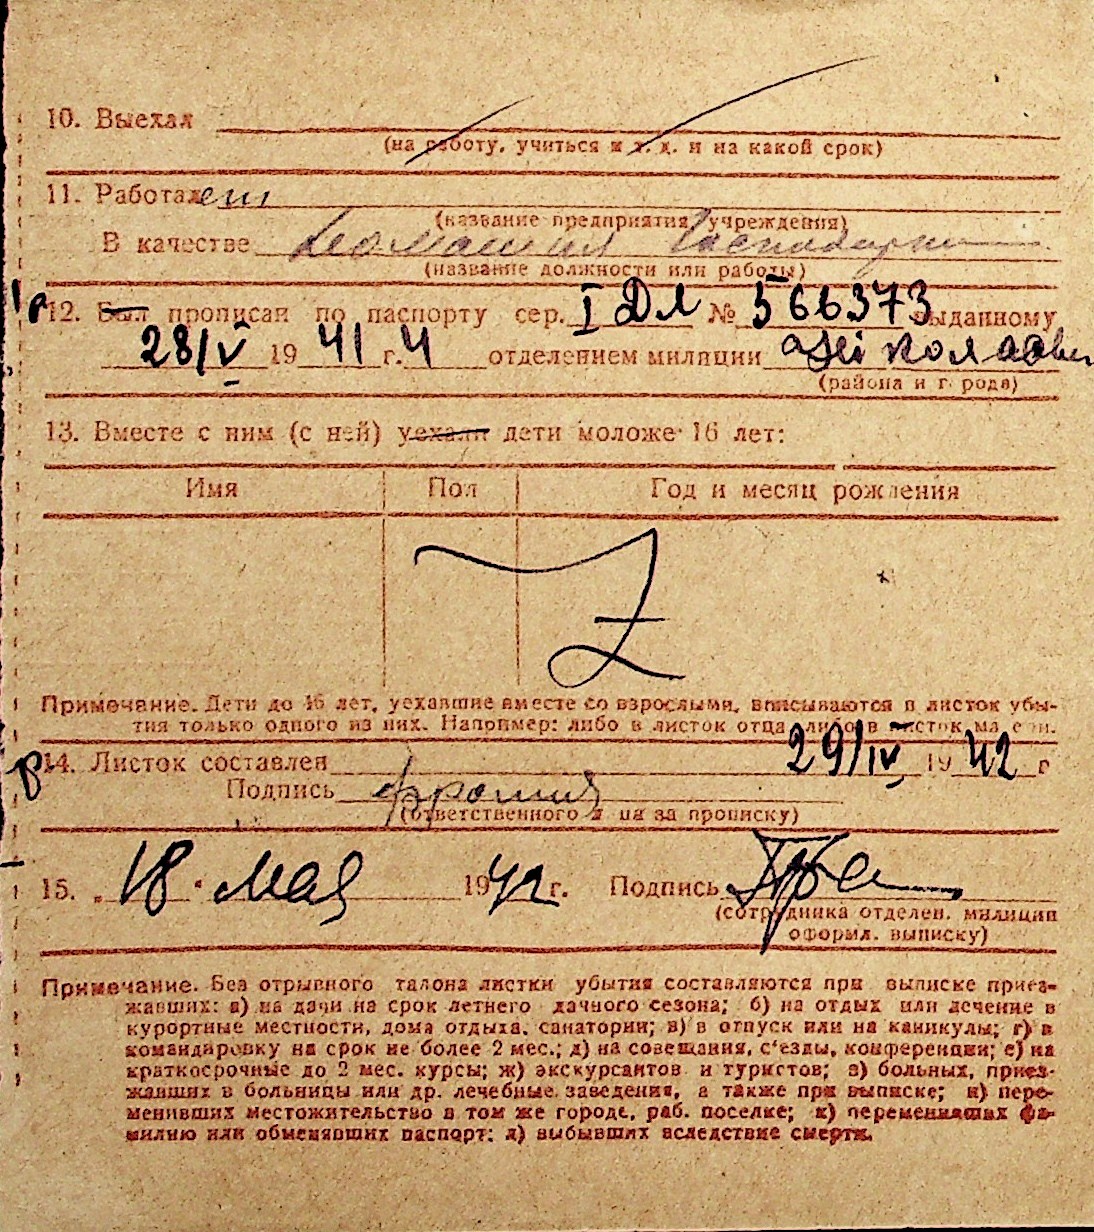 10. Выехал
(на работу, учиться и т. д. и на какой срок)
11. Работал
(название предприятия, учреждения)
В качестве Домашняя
(название должности или работы)
12. Был прописан по паспорту сер. I ДЛ № 566373 выданному
28/V 1941 г. 4 отделением милиции
(района и города)
13. Вместе с ним (с ней) уехали дети моложе 16 лет:
Имя Пол Год и месяц рождения
Z
Примечание. Дети до 16 лет, уехавшие вместе со взрослыми, вписываются в листок убы-
тия только одного из них. Например: либо в листок отца, либо в листок матери.
14. Листок составлен 29/IV 1942 г
Подпись
(ответственного лица за прописку)
15. „18" мая 1942 г. Подпись
(сотрудника отделен. милиции
оформл. выписку)
Примечание. Без отрывного талона листки убытия составляются при выписке приез-
жавших: а) на дачи на срок летнего дачного сезона; б) на отдых или лечение в
курортные местности, дома отдыха, санатории; в) в отпуск или на каникулы; г) в
командировку на срок не более 2 мес.; д) на совещания, с'езды, конференции; е) на
краткосрочные до 2 мес. курсы; ж) экскурсантов и туристов; з) больных, приез-
жавших в больницы или др. лечебные заведения, а также при выписке; и) пере-
менивших местожительство в том же городе, раб. поселке; к) переменивших фа-
милию или обменявших паспорт; л) выбывших вследствие смерти.